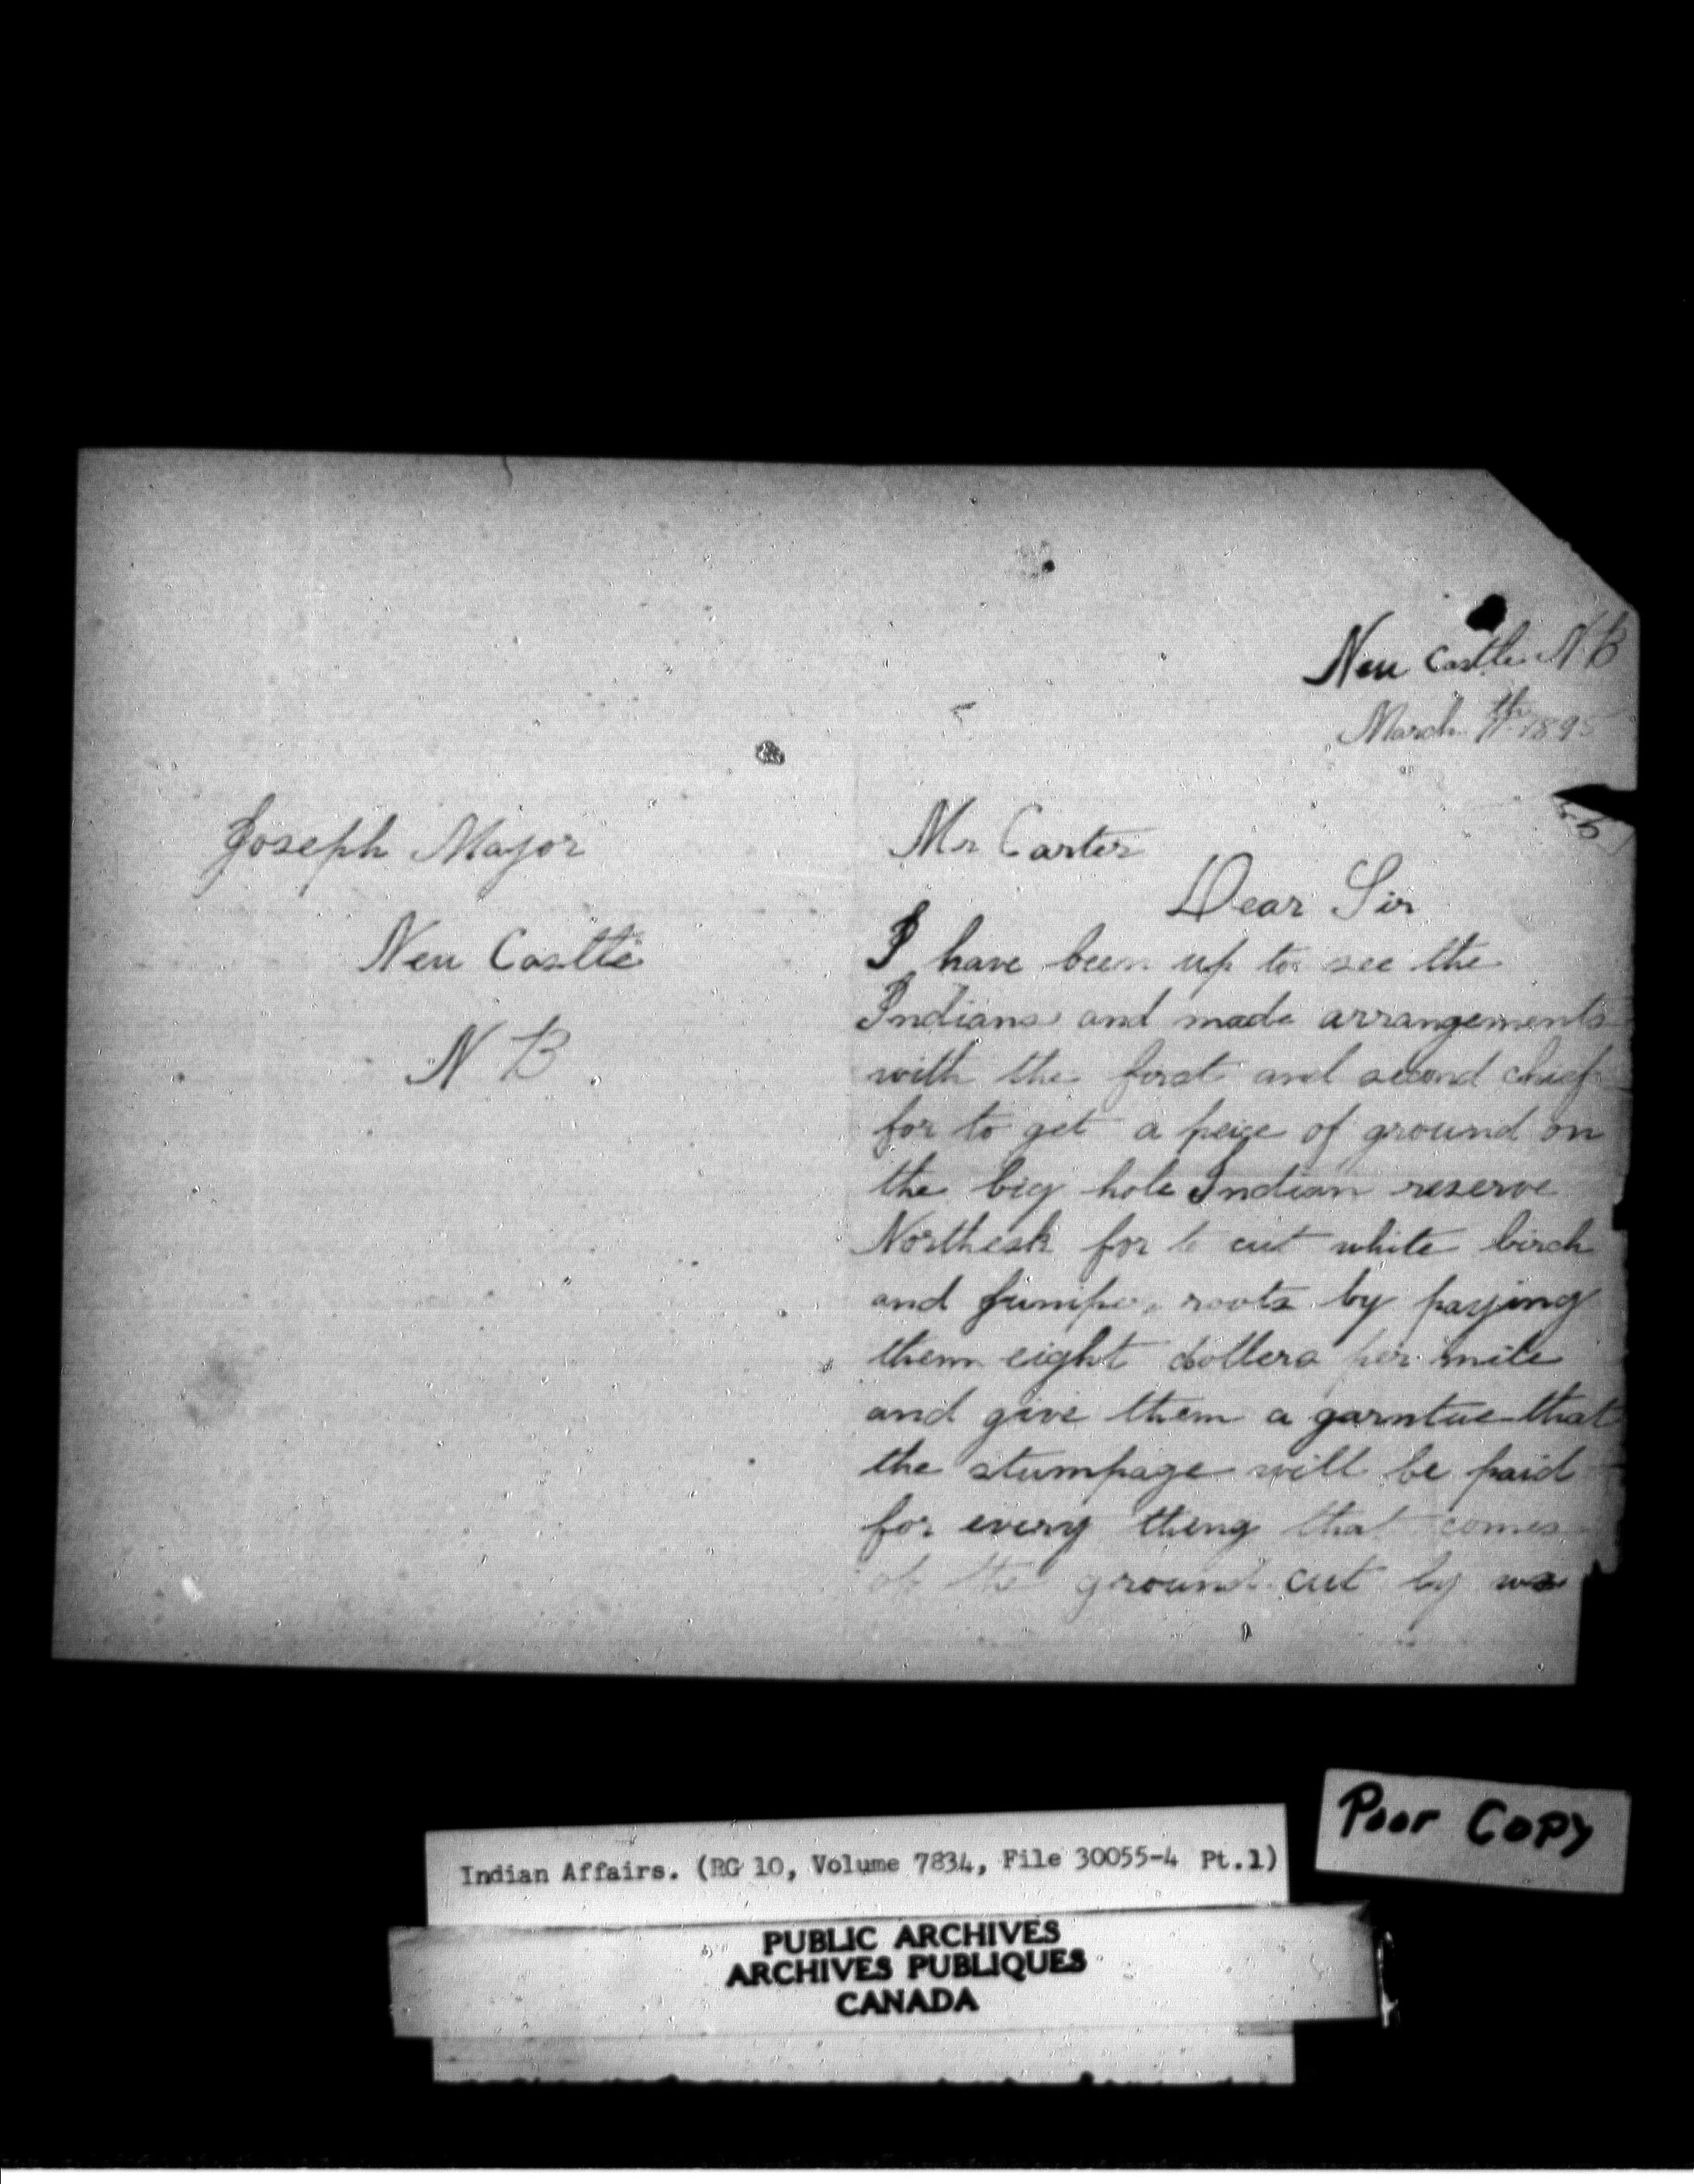 Joseph Major
New Castle
N B
New Castle N.B
March 11th 1895
Mr Carter
Dear Sir
I have been up to see the
Indians and made arrangements
with the first and second chief
for to get a peice of ground on
the big hole Indian reserve
Northesk for to cut white birch
and juniper roots by paying
them eight dollers per mile
and give them a garntue that
the stumpage will be paid
for every thing that comes
of the ground cut by us
Poor Copy
Indian Affairs. (RG 10, Volume 7834, File 30055-4 Pt.1)
PUBLIC ARCHIVES
ARCHIVES PUBLIQUES
CANADA